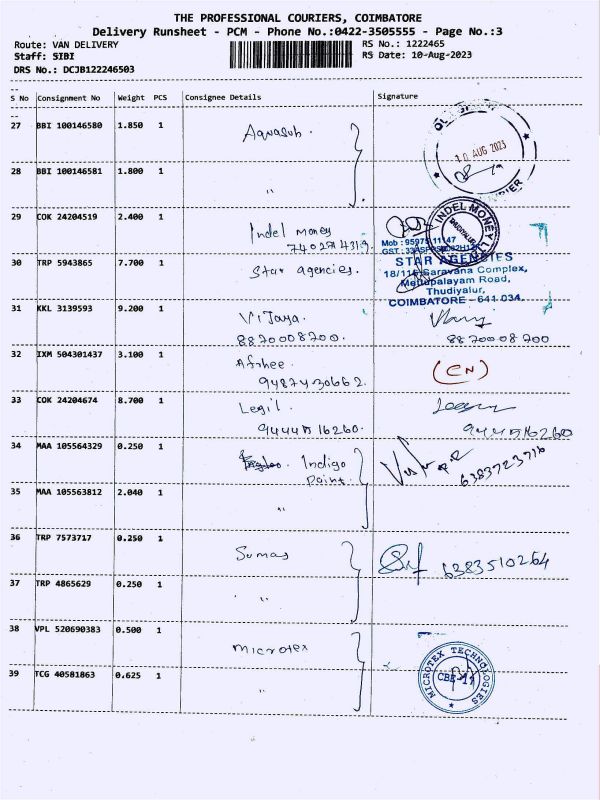 THE PROFESSIONAL COURIERS, COIMBATORE
Delivery Runsheet - PCM - Phone No.:0422-3505555 - Page No.:3
Route: VAN DELIVERY RS No.: 1222465
Staff: SIBI RS Date: 10-Aug-2023
DRS No.: DCJB122246503
S No Consignment No Weight PCS Consignee Details Signature
27 BBI 100146580 1.850 1 Aquasub.
10 AUG 2023
28 BBI 100146581 1.800 1 "
29 COK 24204519 2.400 1 Indel money
INDEL MONEY LTD
THUDIYALUR
Mob : 95975 11147
30 TRP 5943865 7.700 1 Star agencies.
STAR AGENCIES
Saravana Complex,
Mettupalayam Road,
Thudiyalur,
COIMBATORE - 641 034.
31 KKL 3139593 9.200 1 Vijaya.
8870008700. 8870008700
32 IXM 504301437 3.100 1
9487430662. (CN)
33 COK 24204674 8.700 1 Legil.
9444516260. 9444516260
34 MAA 105564329 0.250 1 Indigo
Paint. 6383723716
35 MAA 105563812 2.040 1 "
36 TRP 7573717 0.250 1 Sumas
6383510264
37 TRP 4865629 0.250 1 "
38 VPL 520690383 0.500 1 microtex
MICROTEX TECHNOLOGIES
CBE-17
39 TCG 40581863 0.625 1 "